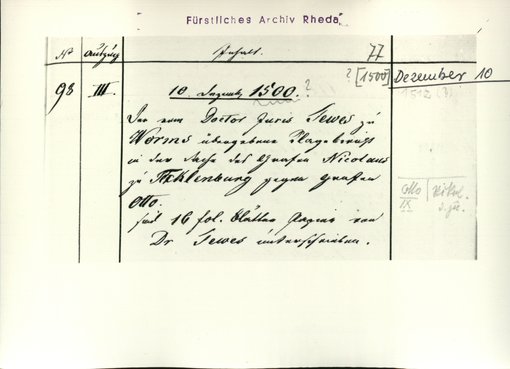 Fürstliches Archiv Rheda
No Auszug Inhalt. 77
? [1500] Dezember 10
1512 (?)
98 III 10. Dezemb. 1500. ?
Der vom Doctor juris Sewes zu
Worms übergebene Klagebericht
in der Sache des Grafen Nicolaus
zu Tecklenburg gegen Grafen
Otto.
sind 16 fol. Blätter Papier von
Dr Sewes unterschrieben.
Otto
IX